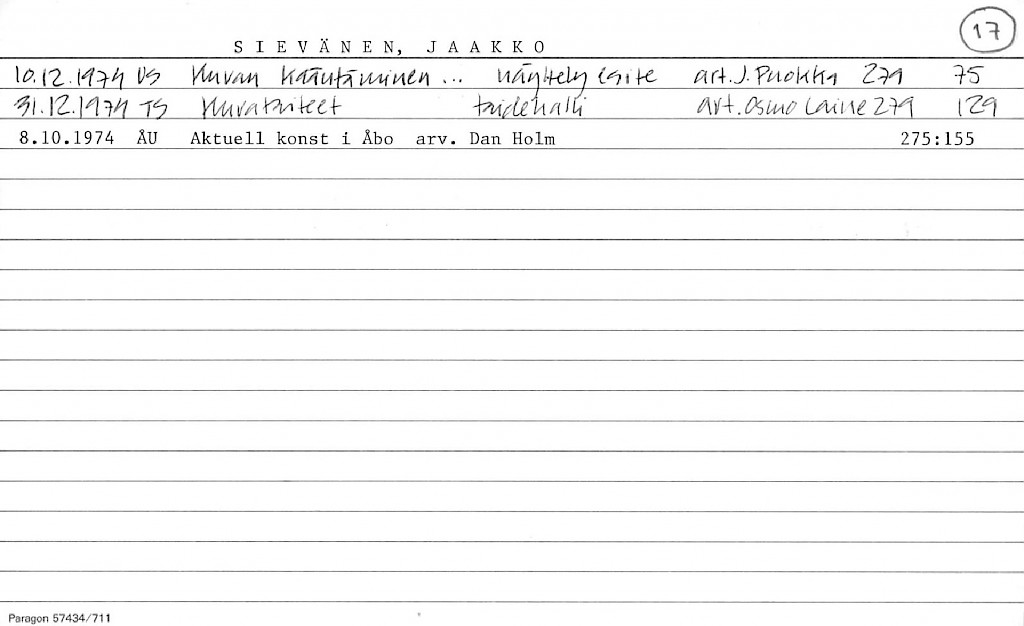 17
SIEVÄNEN, JAAKKO
10.12.1974 US Kuvan kääntäminen ... näyttely esite art. J. Puokka 279 75
31.12.1974 TS Kuvataiteet taidehalli art. Osmo Laine 279 129
8.10.1974 ÅU Aktuell konst i Åbo arv. Dan Holm 275:155
Paragon 57434/711